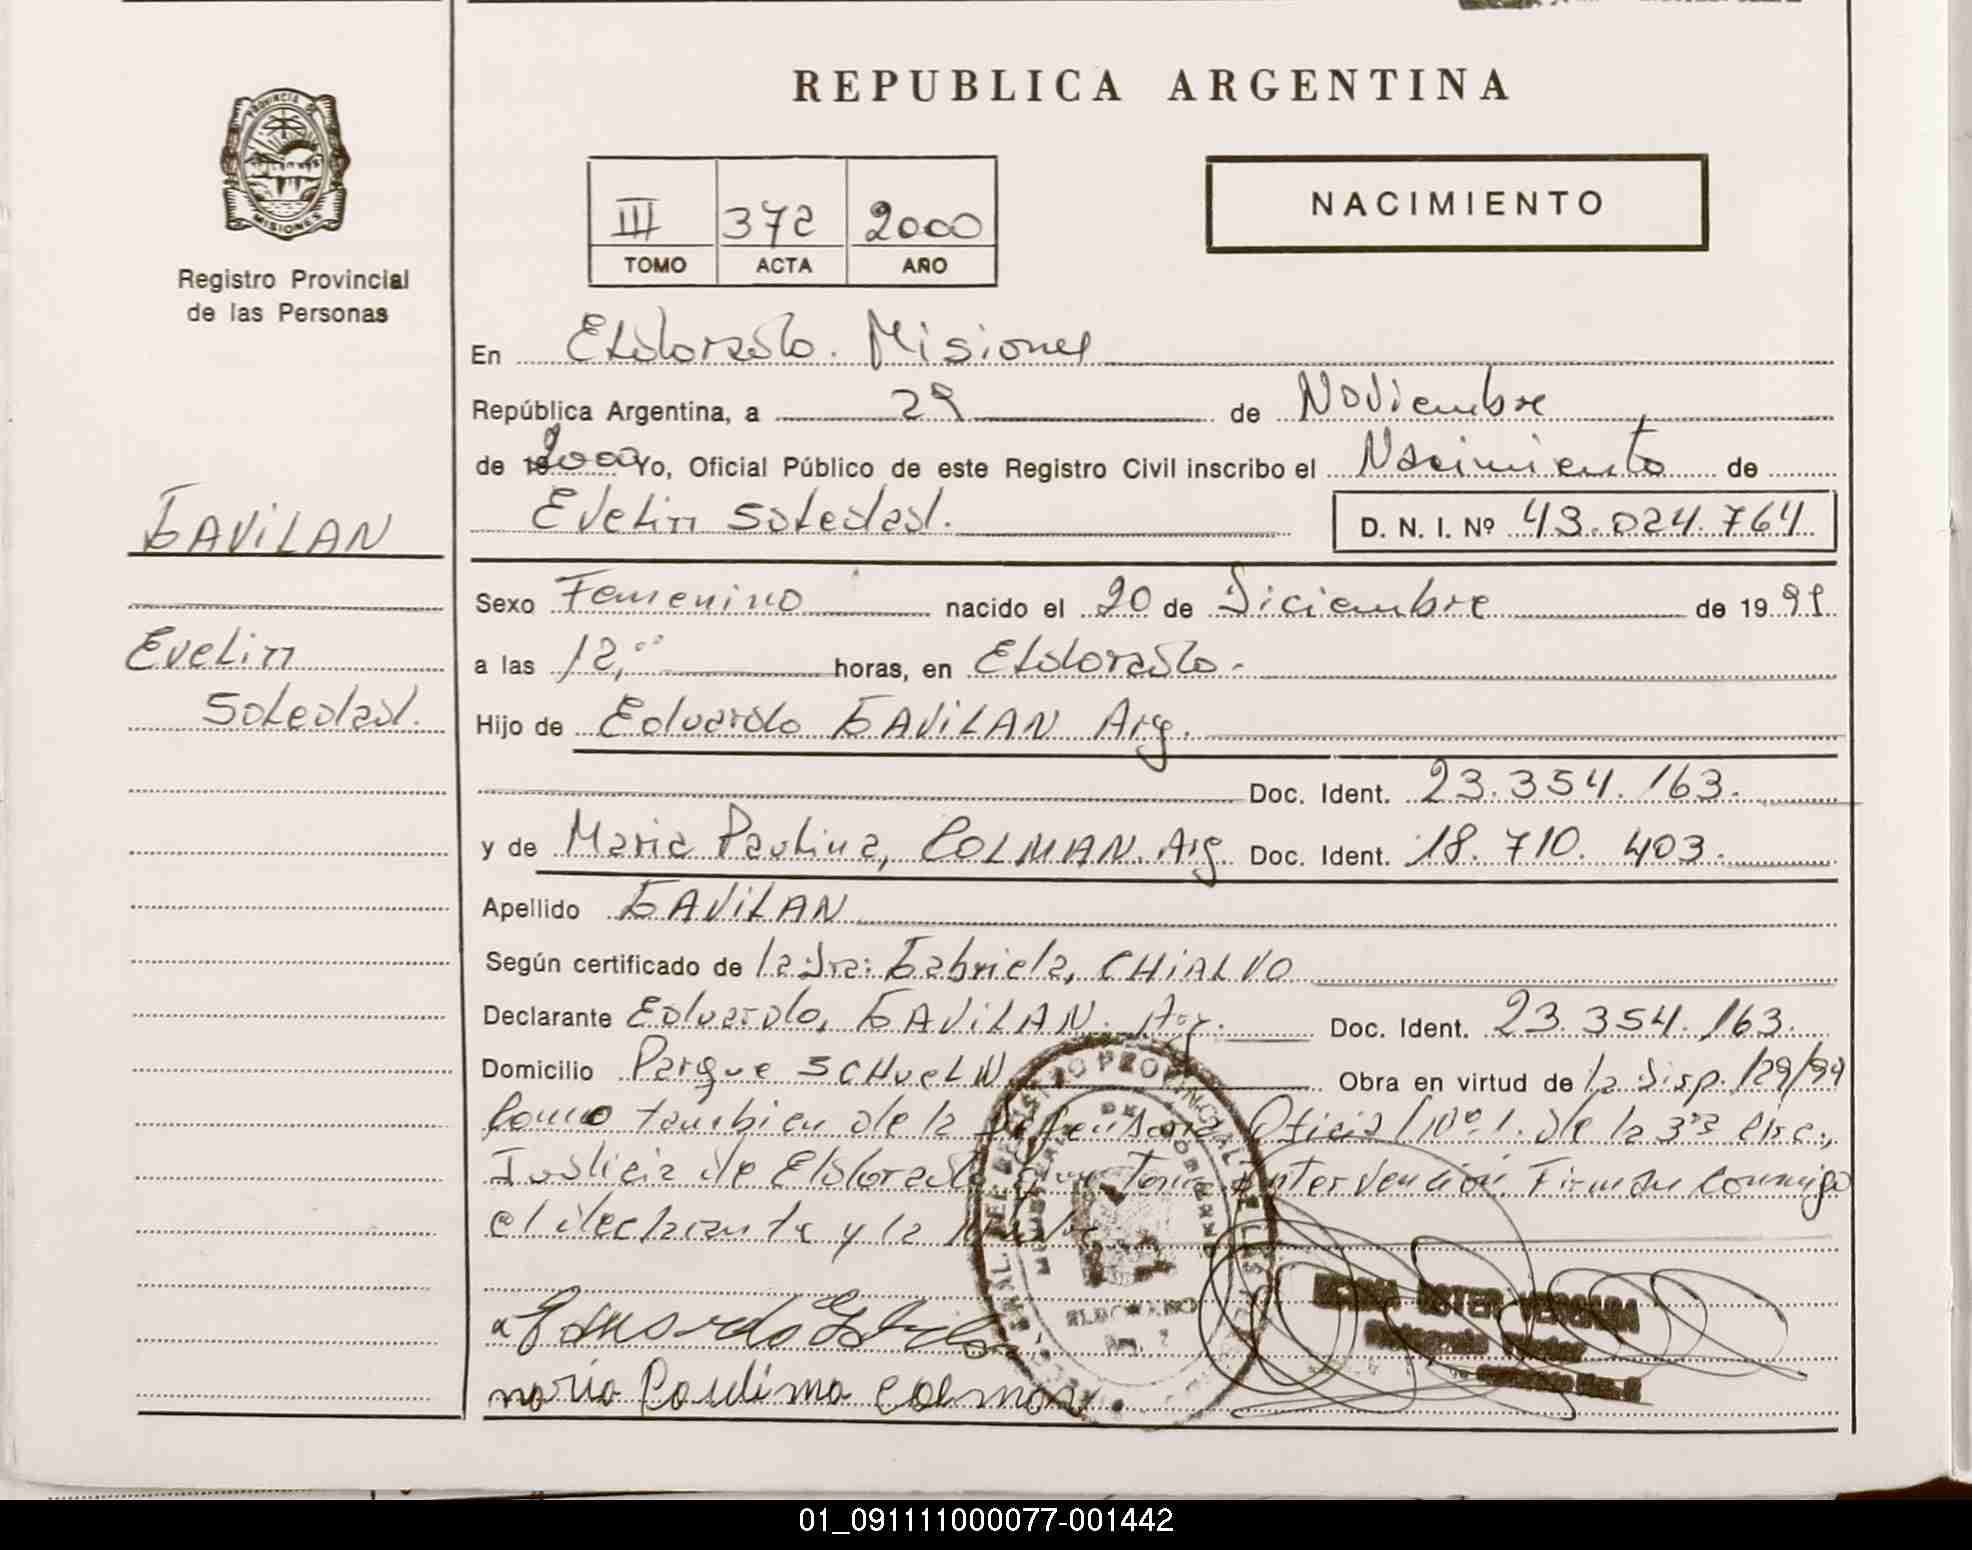 REPUBLICA ARGENTINA
PROVINCIA DE
MISIONES
Registro Provincial
de las Personas
III 372 2000
TOMO ACTA AÑO
NACIMIENTO
En Eldorado. Misiones
República Argentina, a 29 de Noviembre
de 2000 Yo, Oficial Público de este Registro Civil inscribo el Nacimiento de
Evelin Soledad. D. N. I. Nº 43.024.764
GAVILAN
Evelin
Soledad.
Sexo Femenino nacido el 20 de Diciembre de 19 99
a las 12,00 horas, en Eldorado.
Hijo de Eduardo GAVILAN Arg.
Doc. Ident. 23.354.163.
y de Maria Paulina, COLMAN. Arg. Doc. Ident. 18.710.403.
Apellido GAVILAN
Según certificado de la Dra: Gabriela, CHIALVO
Declarante Eduardo, GAVILAN. Arg. Doc. Ident. 23.354.163.
Domicilio Parque SCHUELN Obra en virtud de la Disp. 129/99
Como tambien de la Defensoria Oficial Nº 1. de la 3ra Circ.,
Justicia de Eldorado que toma intervención. Firman conmigo
el declarante y la
ELDORADO
maria Paulina colman
01_091111000077-001442